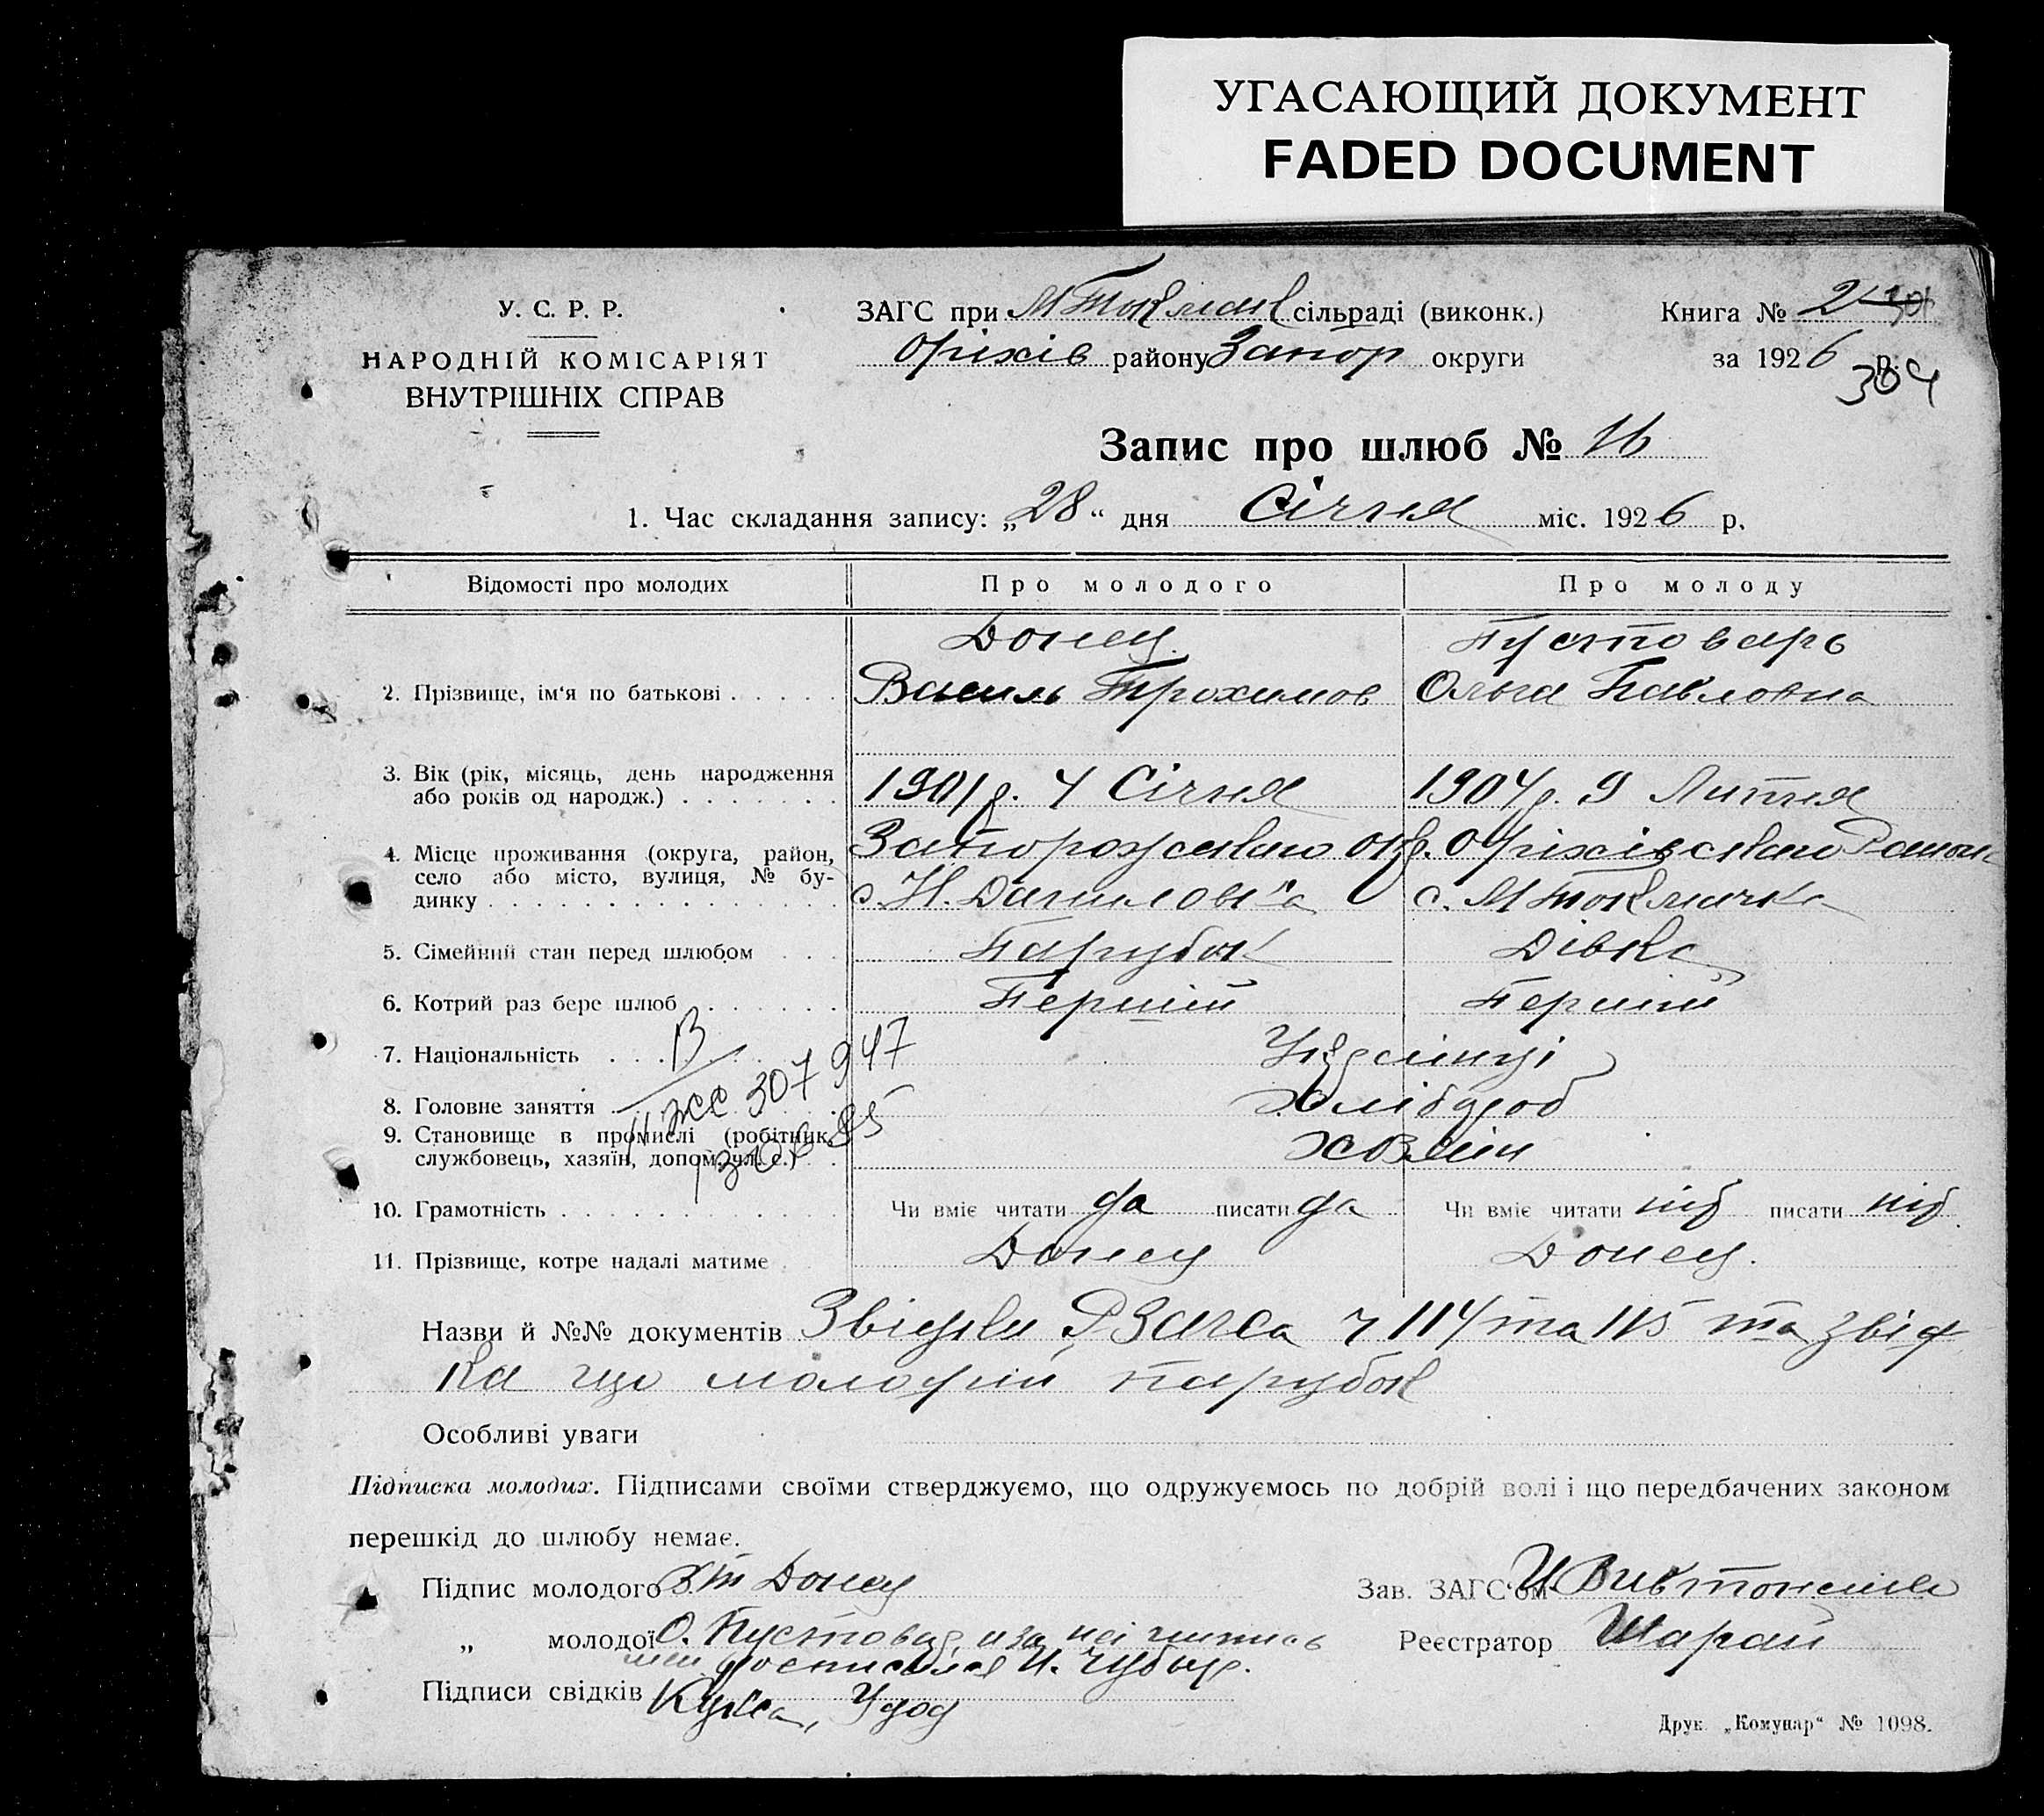 УГАСАЮЩИЙ ДОКУМЕНТ
FADED DOCUMENT
У. С. Р. Р.
НАРОДНІЙ КОМІСАРІЯТ
ВНУТРІШНІХ СПРАВ
ЗАГС при М Токмац сільраді (виконк.)
Оріхів району Запор округи
Книга № 2 301
за 1926 р.
304
Запис про шлюб № 16
1. Час складання запису: „28“ дня Січня міс. 1926 р.
Відомості про молодих Про молодого Про молоду
Донец. Пустоваръ
2. Прізвище, ім'я по батькові Василь Трохимов Ольга Павловна
3. Вік (рік, місяць, день народження
або років од народж.) 1901 р. 4 Січня 1904 р. 9 Липня
4. Місце проживання (округа, район, Запорожсько окр. Оріхівсько Район
село або місто, вулиця, № бу-
динку с. Н. Даниловка с. М Токмачка
5. Сімейний стан перед шлюбом Парубок Дівка
6. Котрий раз бере шлюб Перший Перший
7. Національність Українці
8. Головне заняття Хлібороб
В
947
307
9. Становище в промислі (робітник,
службовець, хазяїн, допом. чл. с.)
85
10. Грамотність Чи вміє читати да писати да Чи вміє читати ніт писати ніт
11. Прізвище, котре надалі матиме Донец Донец.
Назви й №№ документів Звідки РЗагса ч 114 та 115 та звід
ка що молодий парубок
Особливі уваги
Підписка молодих. Підписами своїми стверджуємо, що одружуємось по добрій волі і що передбачених законом
перешкід до шлюбу немає.
Підпис молодого Донец
Зав. ЗАГС'ом
„ молодої О. Пустовар, а за неї
росписался И. Чубар.
Реєстратор Шарай
Підписи свідків Кучка, Удод
Друк. „Комунар“ № 1098.